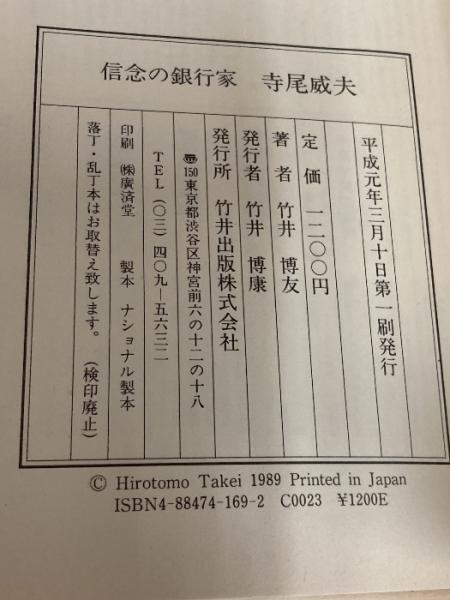 信念の銀行家　寺尾威夫
平成元年三月十日第一刷発行
定　価　一二〇〇円
著　者　竹井　博友
発行者　竹井　博康
発行所　竹井出版株式会社
〠150東京都渋谷区神宮前六の十二の十八
TEL（〇三）四〇九―五六三二
印刷　㈱廣済堂　　製本　ナショナル製本
落丁・乱丁本はお取替え致します。　（検印廃止）
© Hirotomo Takei 1989 Printed in Japan
ISBN4-88474-169-2　C0023　¥1200E